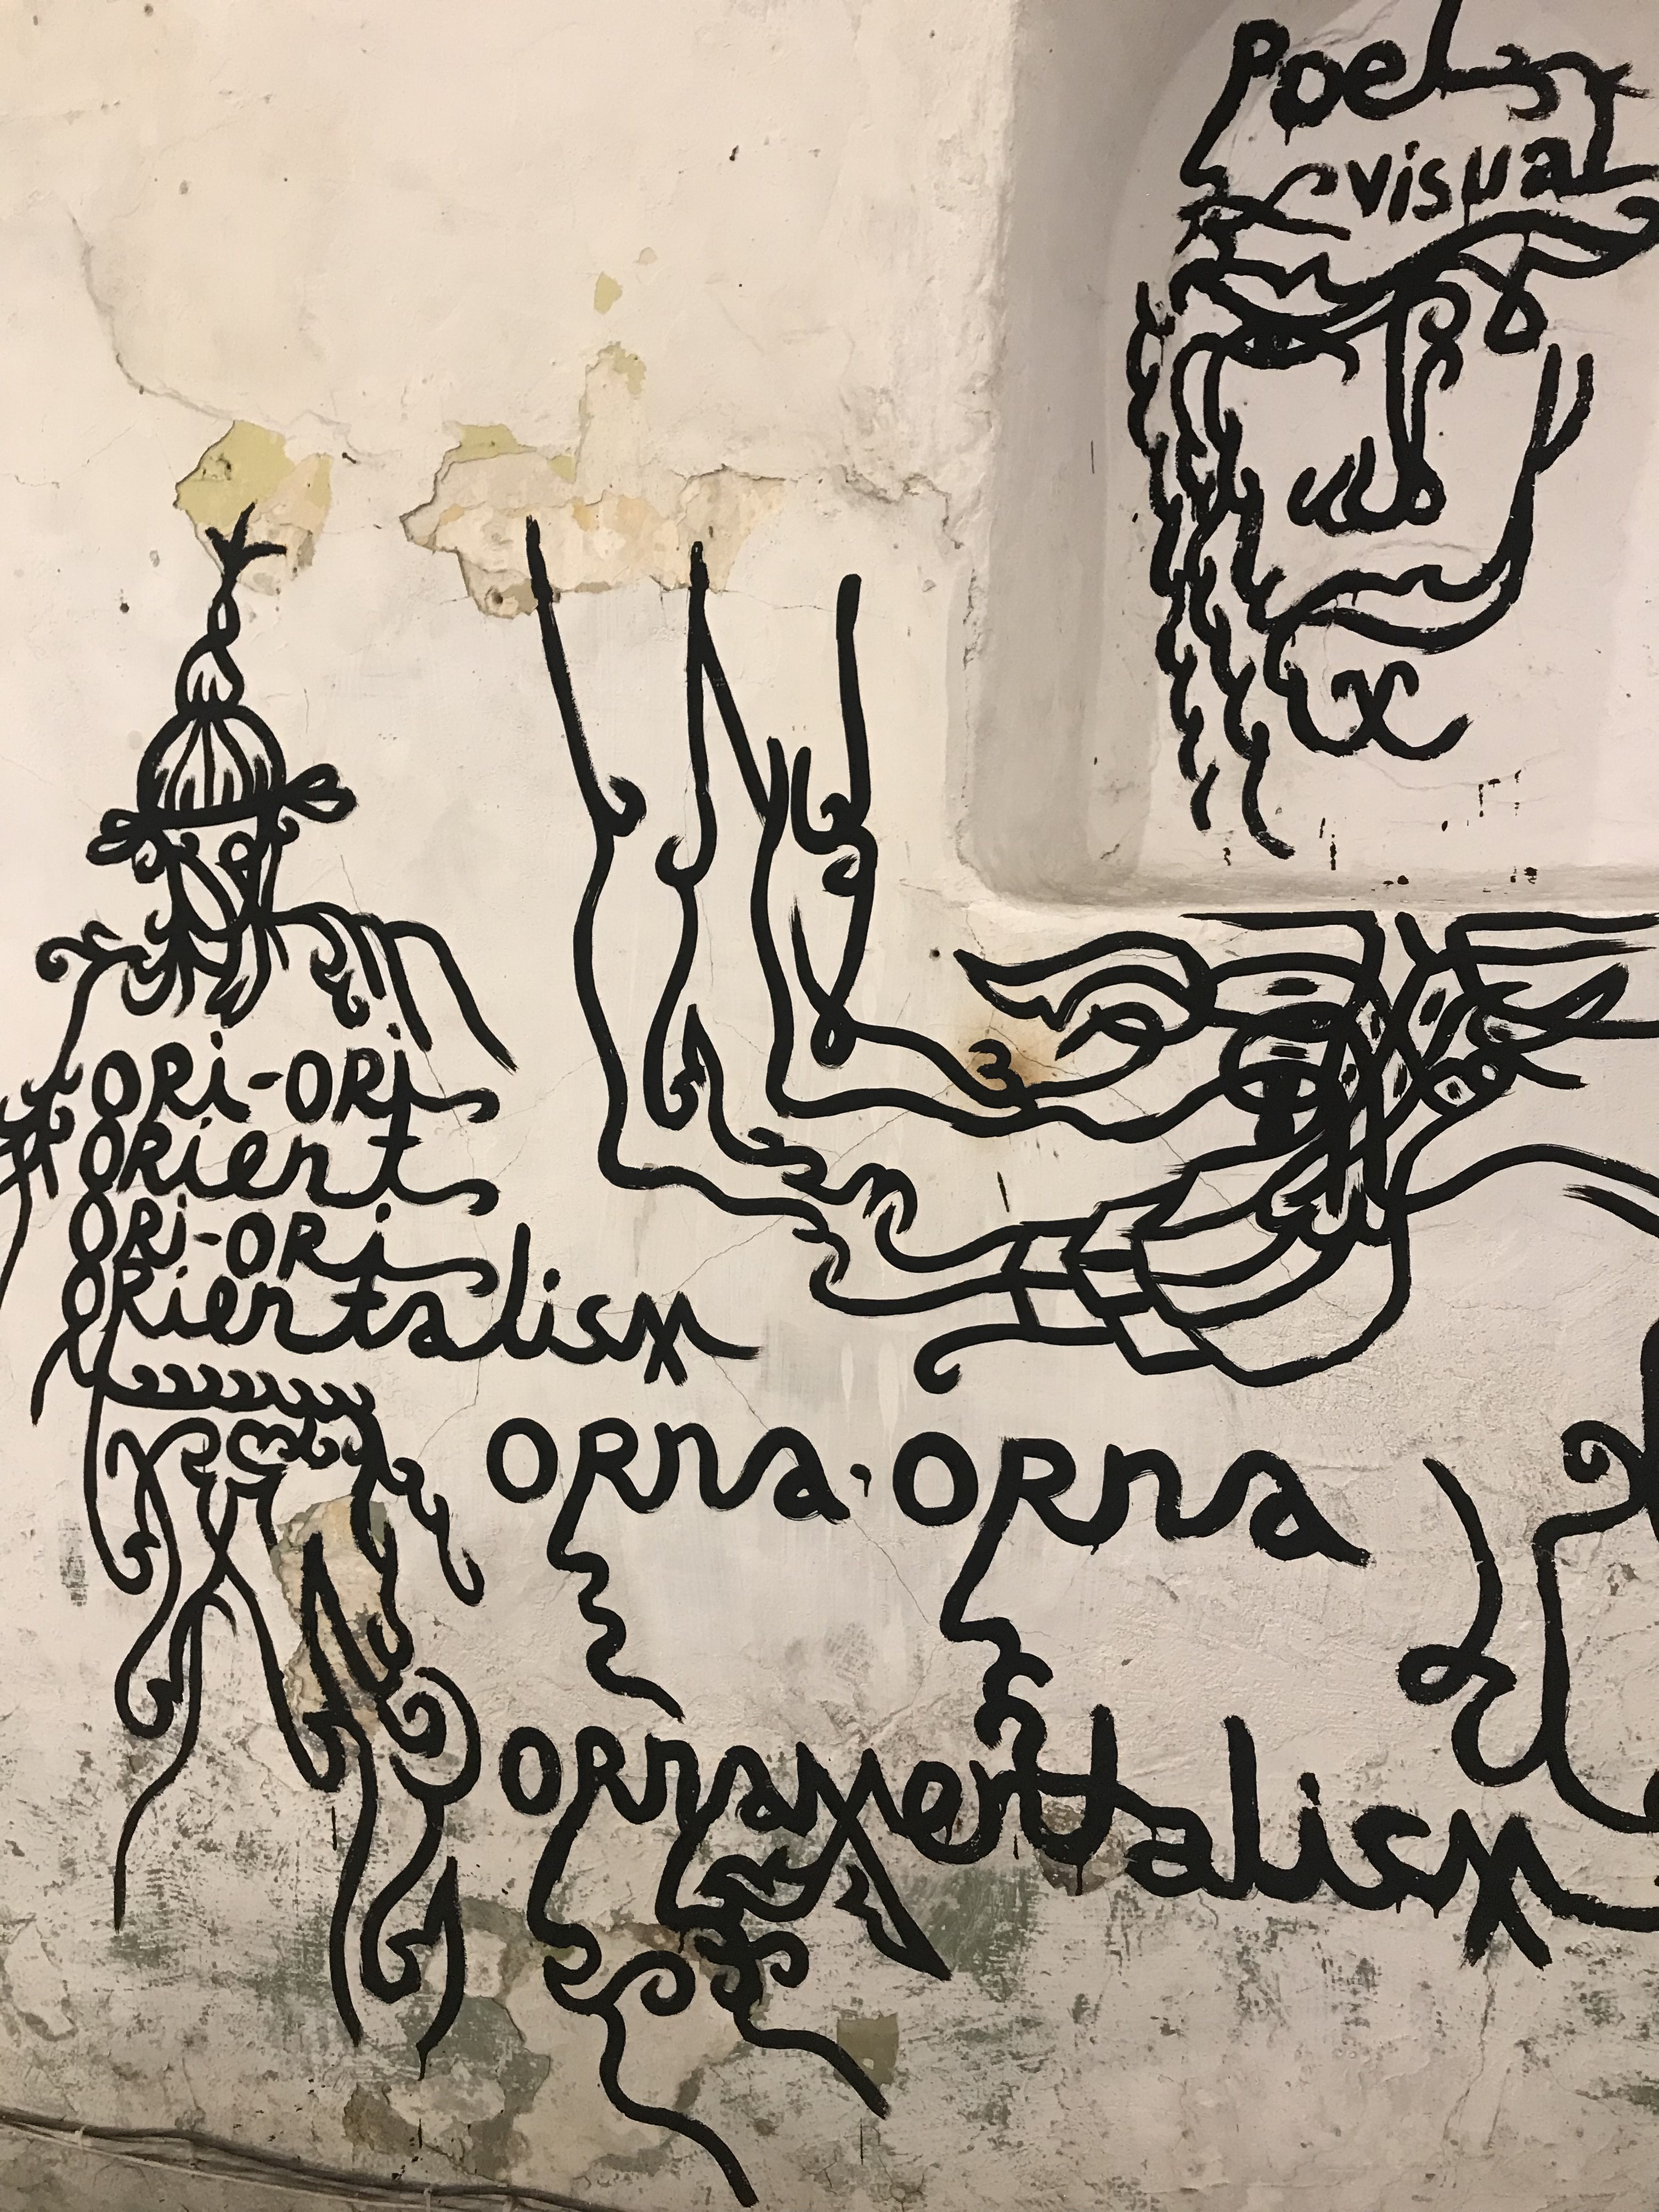 Poetry
visual
ORi-ORi
ORient
ORi-ORi
ORientalism
ORna, ORna
ORnamentalism